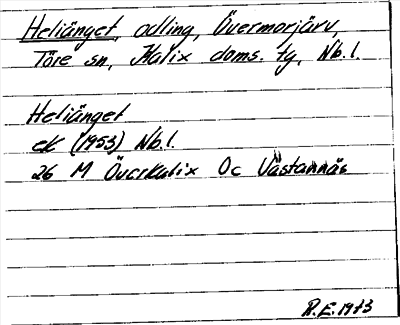 Heliänget, odling, Övermorjärv,
Töre sn, Kalix doms. tg, Nb.l.
Heliänget
ek (1953) Nb.l.
26 M Överkalix Oc Västannäs
R.E. 1973